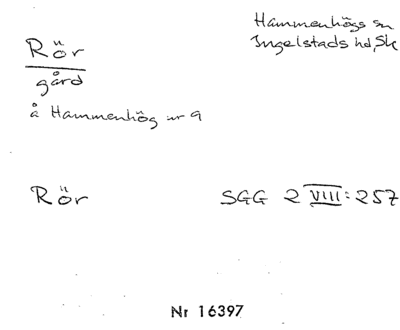 Hammenhögs sn
Ingelstads hd, Sk
Rör
gård
å Hammenhög nr 9
Rör
SGG 2 VIII: 257
Nr 16397